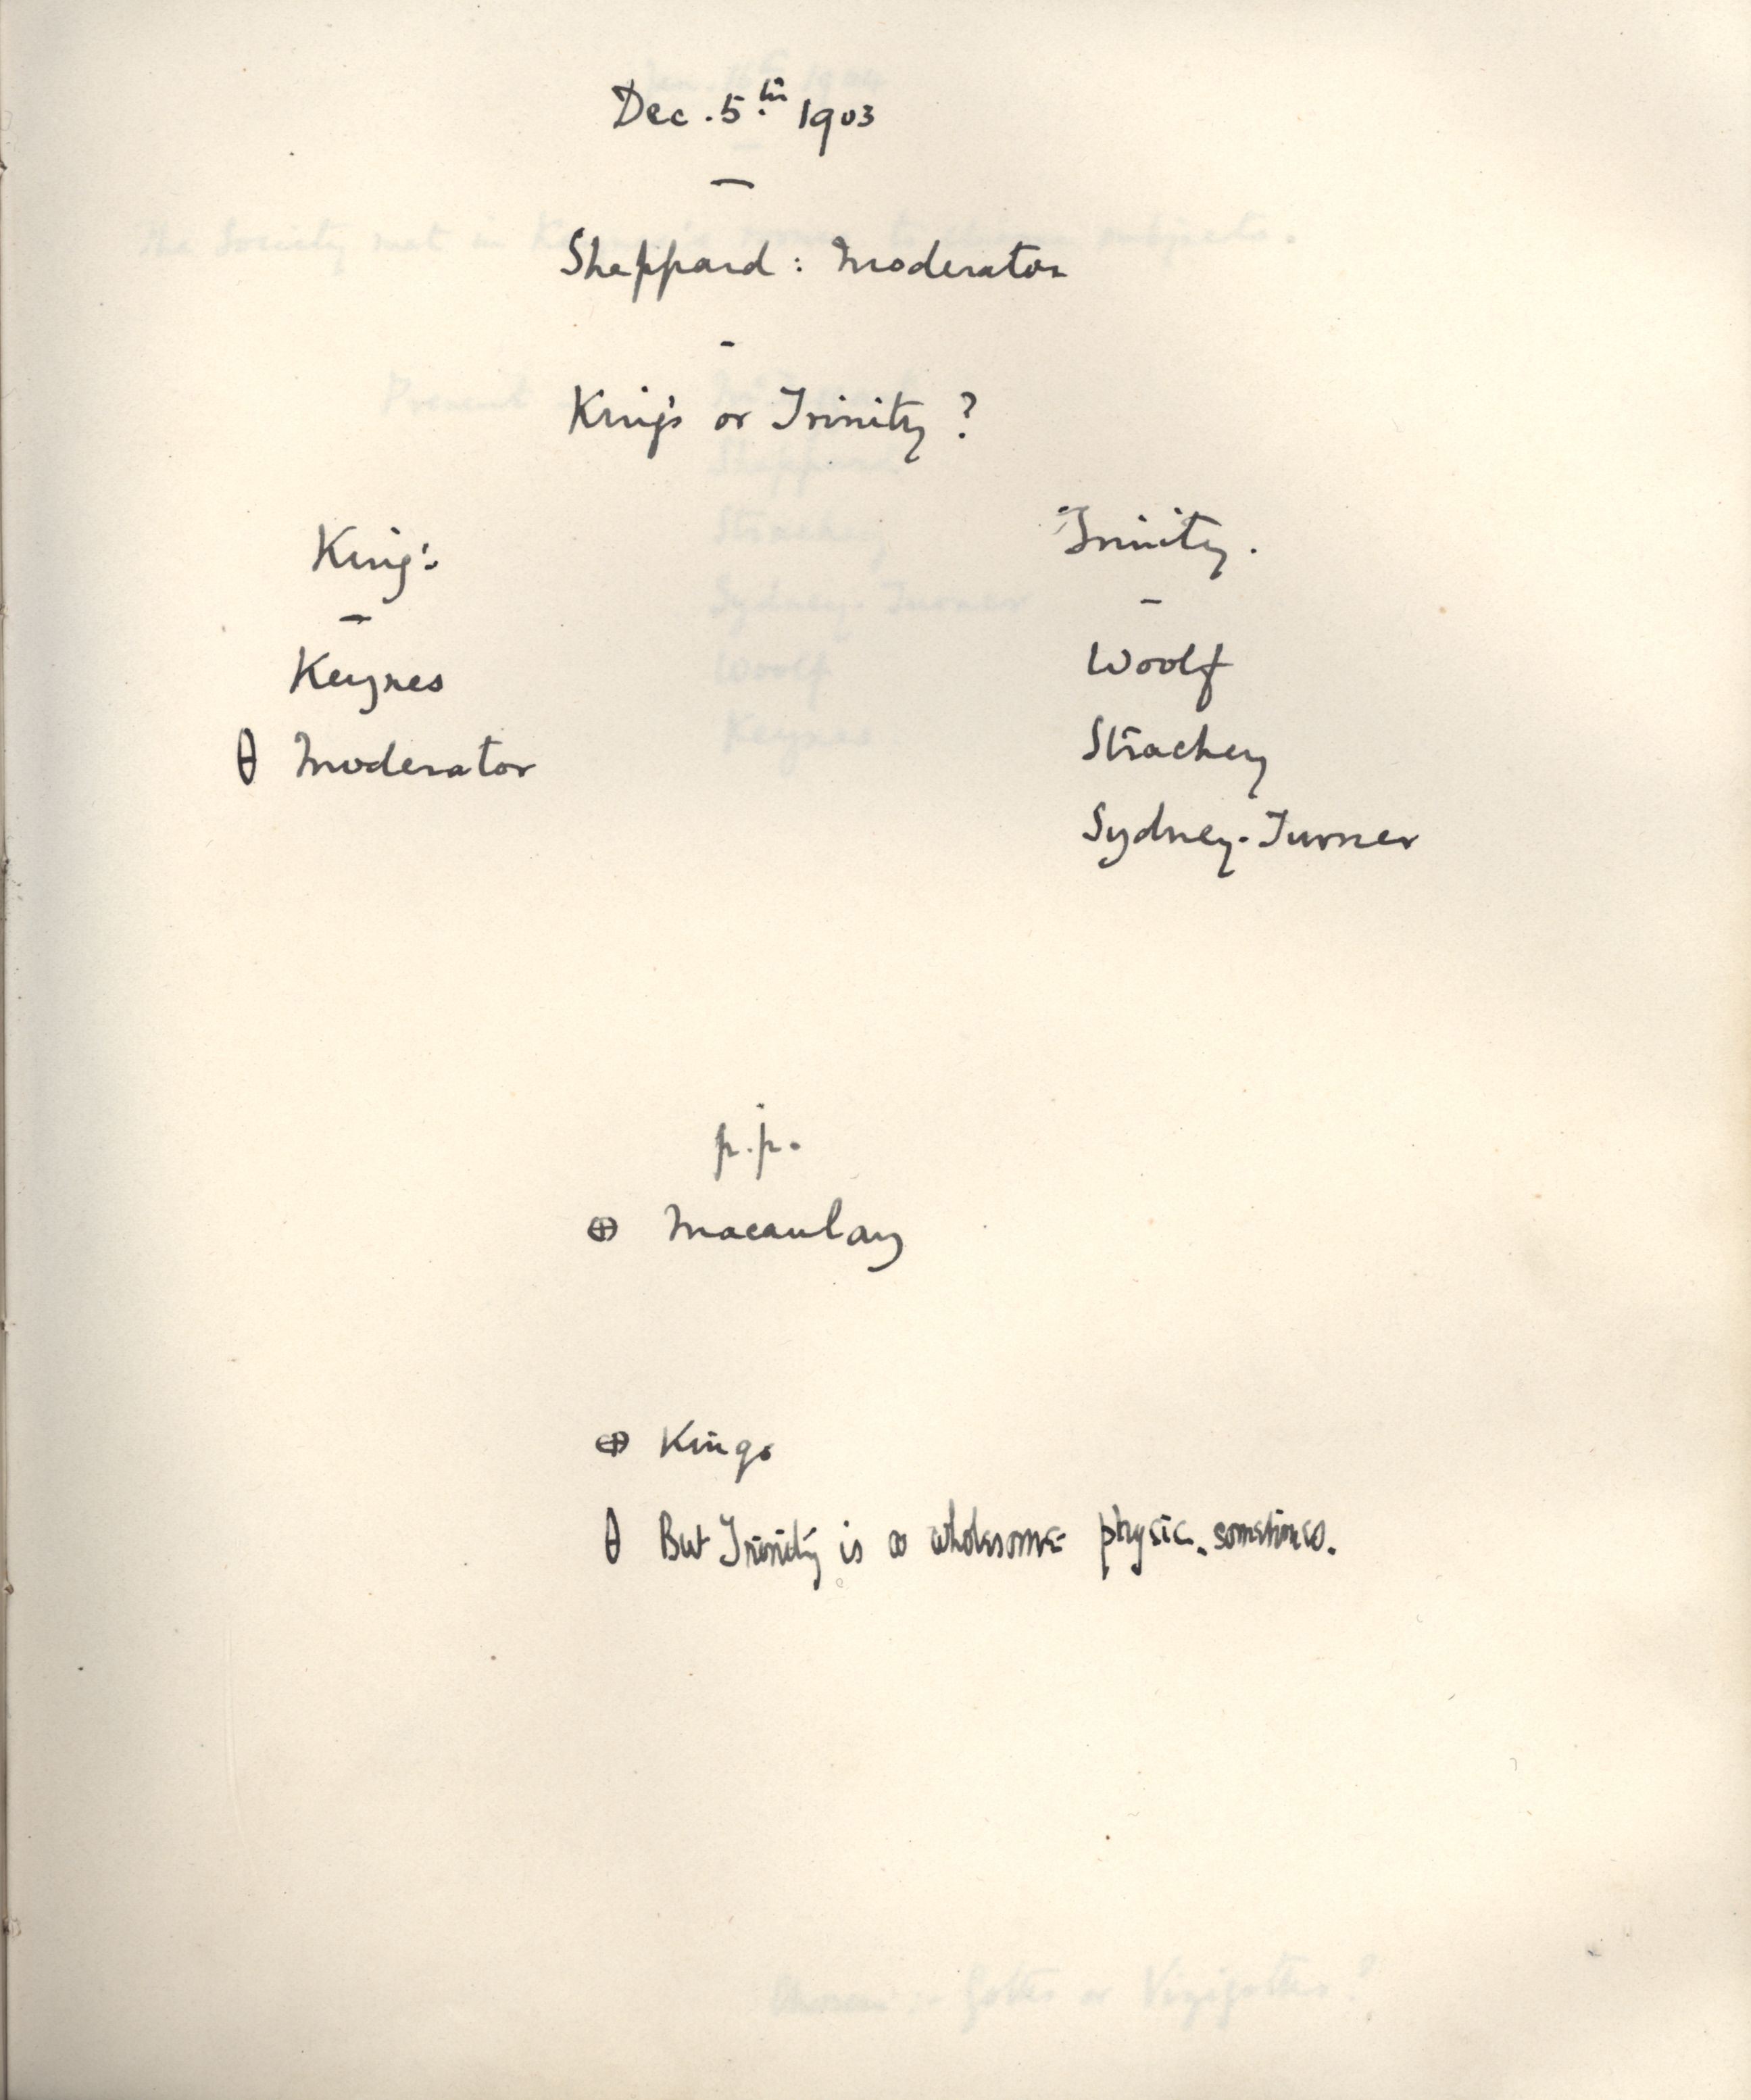 Dec. 5th 1903
Sheppard: Moderator
King's or Trinity?
King's
Trinity.
Keynes
Woolf
θ Moderator
Strachey
Sydney-Turner
p.p.
⊕ Macaulay
⊕ Kings
θ But Trinity is a wholesome physic, sometimes.